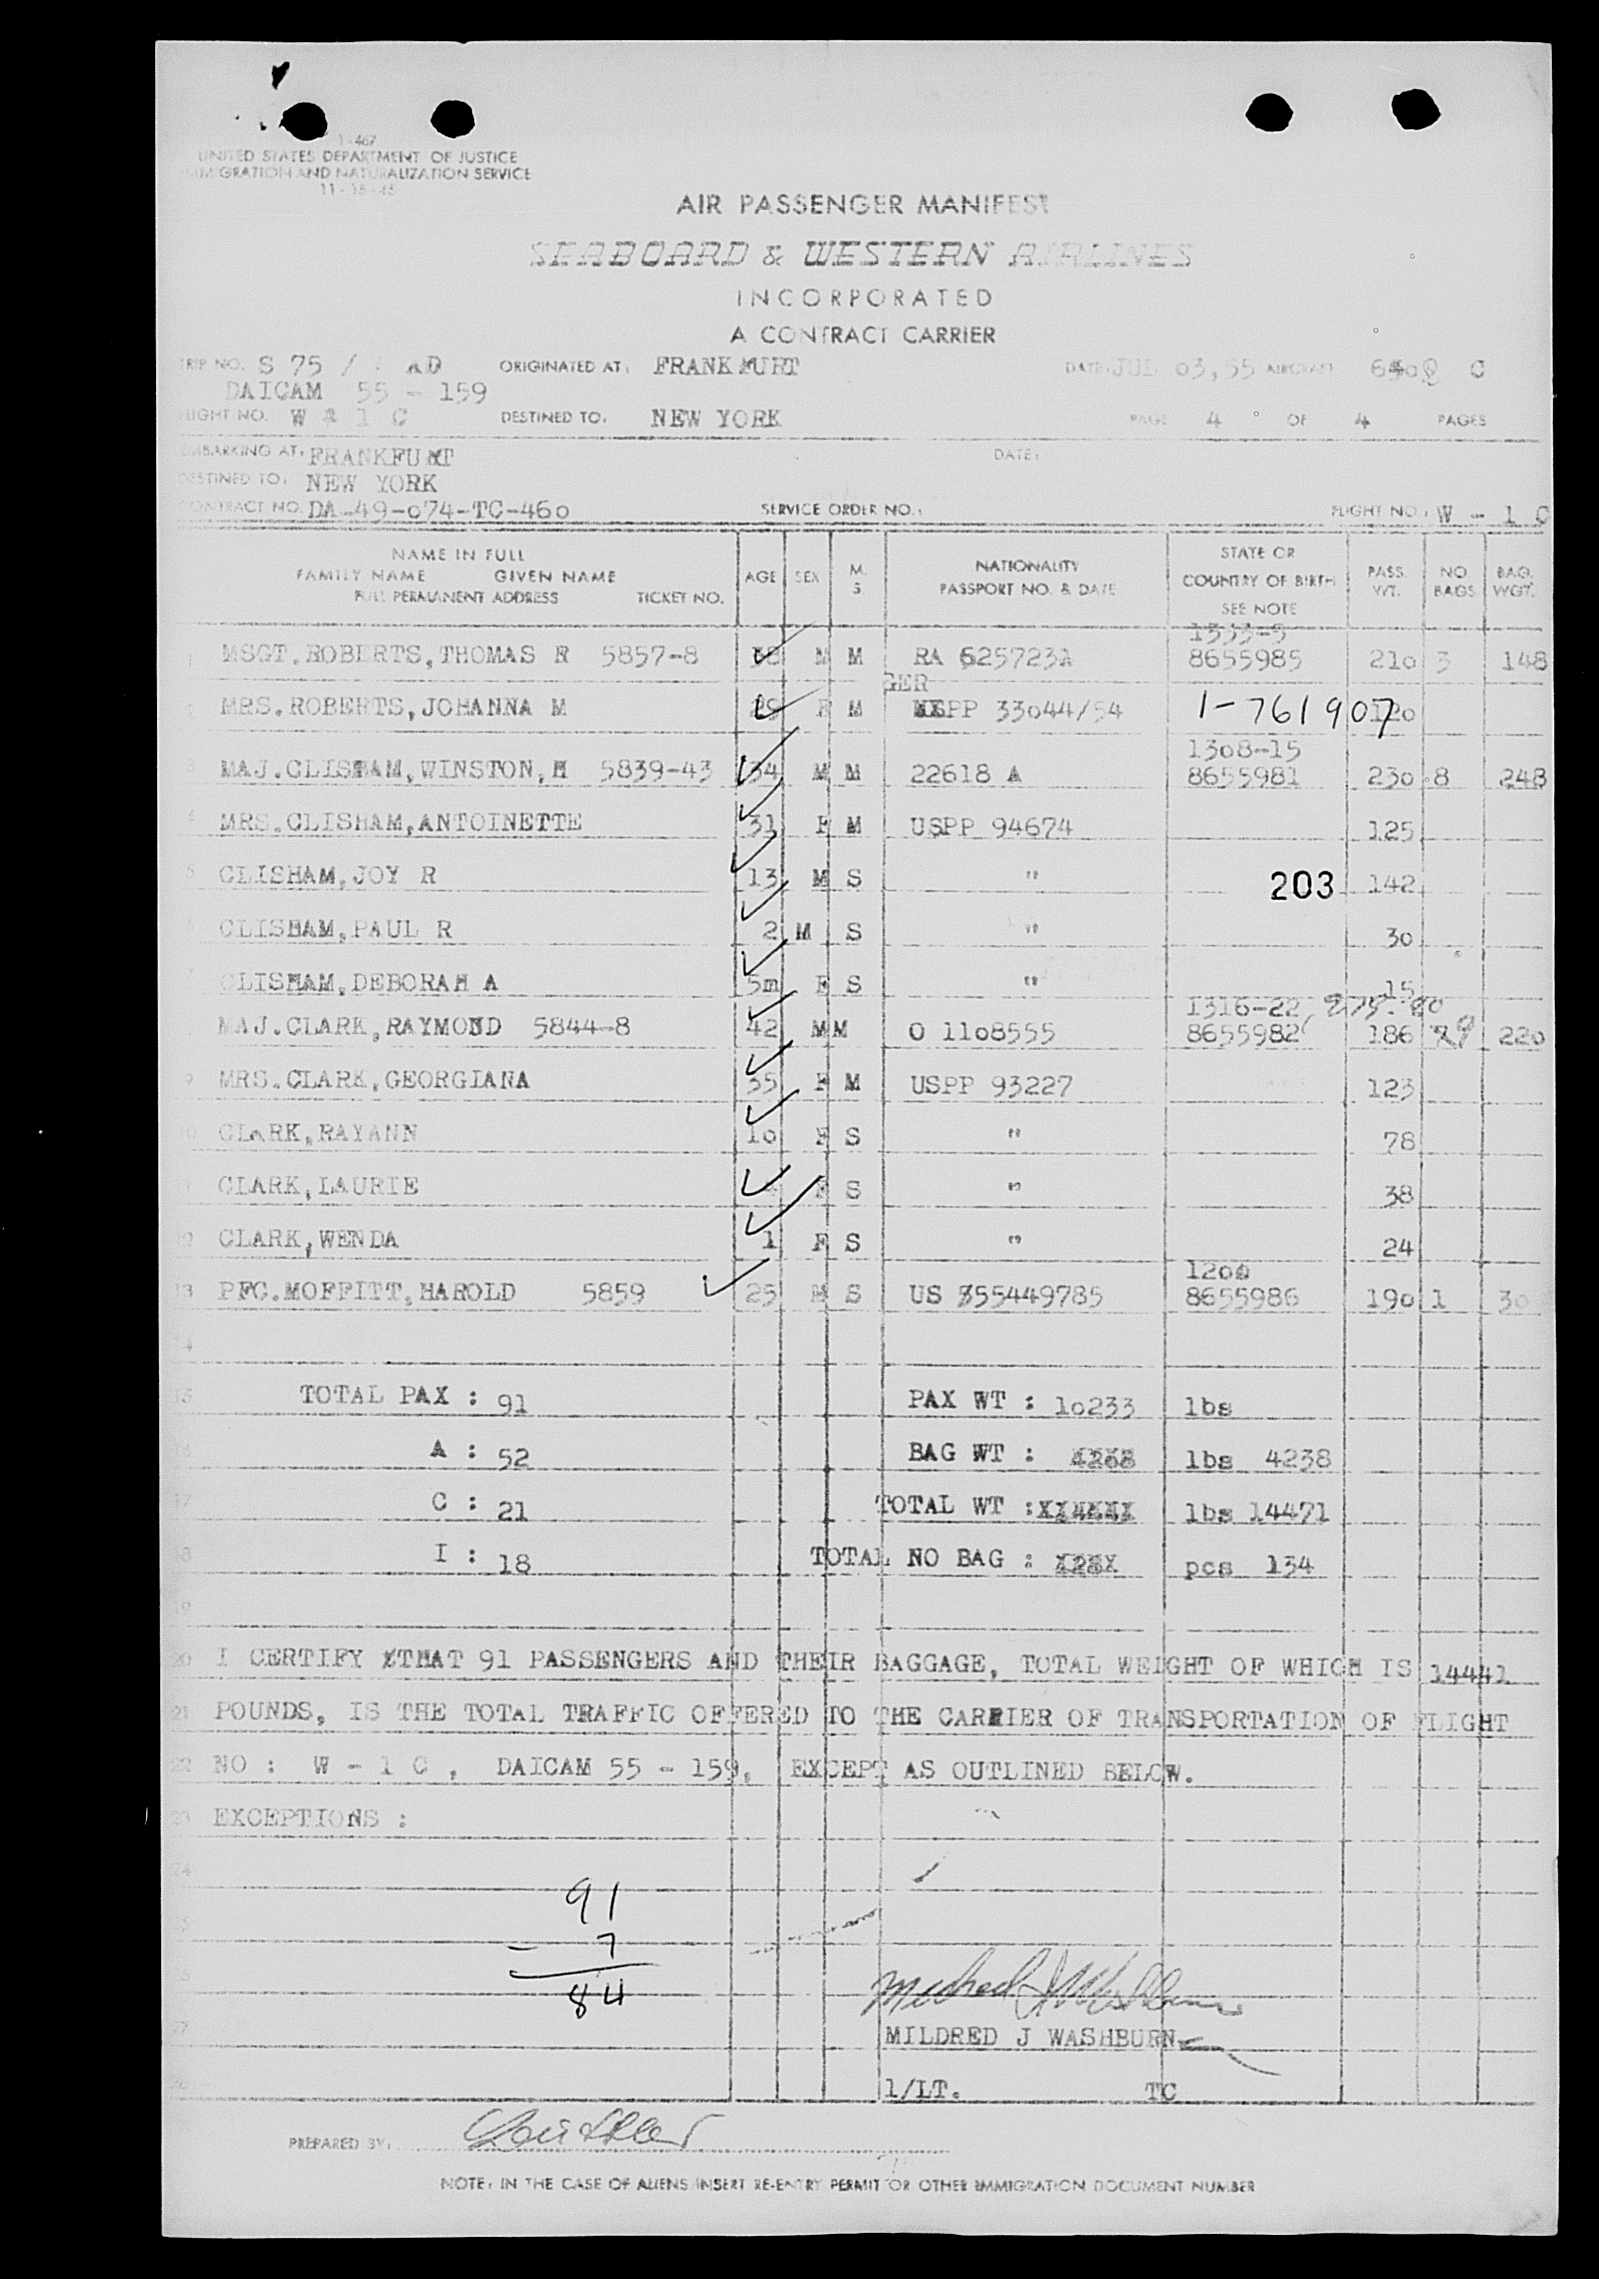 1-467
UNITED STATES DEPARTMENT OF JUSTICE
IMMIGRATION AND NATURALIZATION SERVICE
AIR PASSENGER MANIFEST
SEABOARD & WESTERN AIRLINES
INCORPORATED
A CONTRACT CARRIER
TRIP NO. S 75 / AD ORIGINATED AT: FRANKFURT DATE: JUL 03,55 AIRCRAFT C
DAICAM 55 - 159
FLIGHT NO. W 1 C DESTINED TO: NEW YORK PAGE 4 OF 4 PAGES
EMBARKING AT: FRANKFURT DATE:
DESTINED TO: NEW YORK
CONTRACT NO. DA-49-o74-TC-46o SERVICE ORDER NO.: FLIGHT NO.: W - 1 C
NAME IN FULL
FAMILY NAME GIVEN NAME
FULL PERMANENT ADDRESS TICKET NO. AGE SEX M. S NATIONALITY PASSPORT NO. & DATE STATE OR COUNTRY OF BIRTH SEE NOTE PASS. WT. NO BAGS BAG. WGT.
1333-5
1 MSGT.ROBERTS,THOMAS R 5857-8 38 M M RA 6257232A 8655985 21o 3 148
GER
MRS.ROBERTS,JOHANNA M 29 F M PP 33o44/54 1-761907 12o
1308-15
3 MAJ.CLISHAM,WINSTON,H 5839-43 34 M M 22618 A 8655981 23o 8 248
4 MRS.CLISHAM,ANTOINETTE 31 F M USPP 94674 125
5 CLISHAM,JOY R 13 M S " 203 142
CLISHAM,PAUL R 2 M S " 3o
7 CLISHAM,DEBORAH A 5m F S " 15
1316-22
MAJ.CLARK,RAYMOND 5844-8 42 M M O 11o8555 8655982 186 9 22o
9 MRS.CLARK,GEORGIANA 35 F M USPP 93227 123
10 CLARK,RAYANN 1o F S " 78
CLARK,LAURIE F S " 38
12 CLARK,WENDA 1 F S " 24
13 PFC.MOFFITT,HAROLD 5859 25 M S US 55449785 8655986 19o 1 3o
14
15 TOTAL PAX : 91 PAX WT : 1o233 lbs
A : 52 BAG WT : lbs 4238
17 C : 21 TOTAL WT : lbs 14471
18 I : 18 TOTAL NO BAG : pcs 134
19
20 I CERTIFY THAT 91 PASSENGERS AND THEIR BAGGAGE, TOTAL WEIGHT OF WHICH IS 14441
21 POUNDS, IS THE TOTAL TRAFFIC OFFERED TO THE CARRIER OF TRANSPORTATION OF FLIGHT
22 NO : W - 1 C , DAICAM 55 - 159, EXCEPT AS OUTLINED BELOW.
23 EXCEPTIONS :
24
91
- 7
84
Mildred J Washburn
27 MILDRED J WASHBURN
1/LT. TC
PREPARED BY:
NOTE: IN THE CASE OF ALIENS INSERT RE-ENTRY PERMIT OR OTHER IMMIGRATION DOCUMENT NUMBER